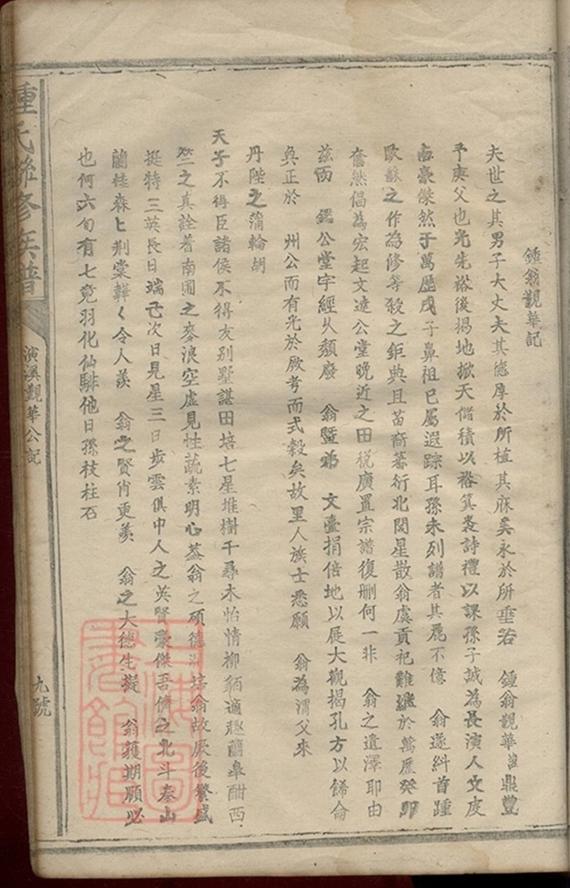 鍾翁觀華記
夫世之其男子大丈夫其德厚於所植其庥奚永於所垂若 鍾翁觀華 鼎豐
予庚父也光先裕後揭地掀天儲積以裕箕裘詩禮以課孫子誠為長演人文度
豪傑然于萬歷戊子鼻祖已屬遐踪耳孫未列譜者其麗不億 翁遂糾首踵
歐蘇之作為修等殺之鉅典且苗裔蕃衍北閧星散翁虞貢祀難繼於萬歷癸卯
奮然倡為宏起文達公堂晚近之田稅廣置宗譜復刪何一非 翁之遺澤耶由
茲而 鑑公堂宇經乆頹廢 翁暨弟 文臺捐倍地以展大觀揭孔方以餙侖
奐正於 州公而有光於厥考而式穀矣故里人族士悉願 翁為渭父來
丹陛之蒲輪胡
天子不得臣諸侯不得友別墅謀田培七星堆樹千尋木怡情柳陌適趣蘭皋酣西
竺之真詮著南圃之麥浪空虛見性蔬素明心蓋翁之碩德 翁故庚後繁盛
挺特三英長日端己次日見星三日步雲俱中人之英賢豪傑吾儕之北斗泰山
蘭桂森匕荆棠韡く令人羨 翁之賢肖更羨 翁之大德生 翁穫期願必
也何六旬有七竟羽化仙騑他日孫枝柱石
鍾氏聯修族譜
演溪觀華公記
九號